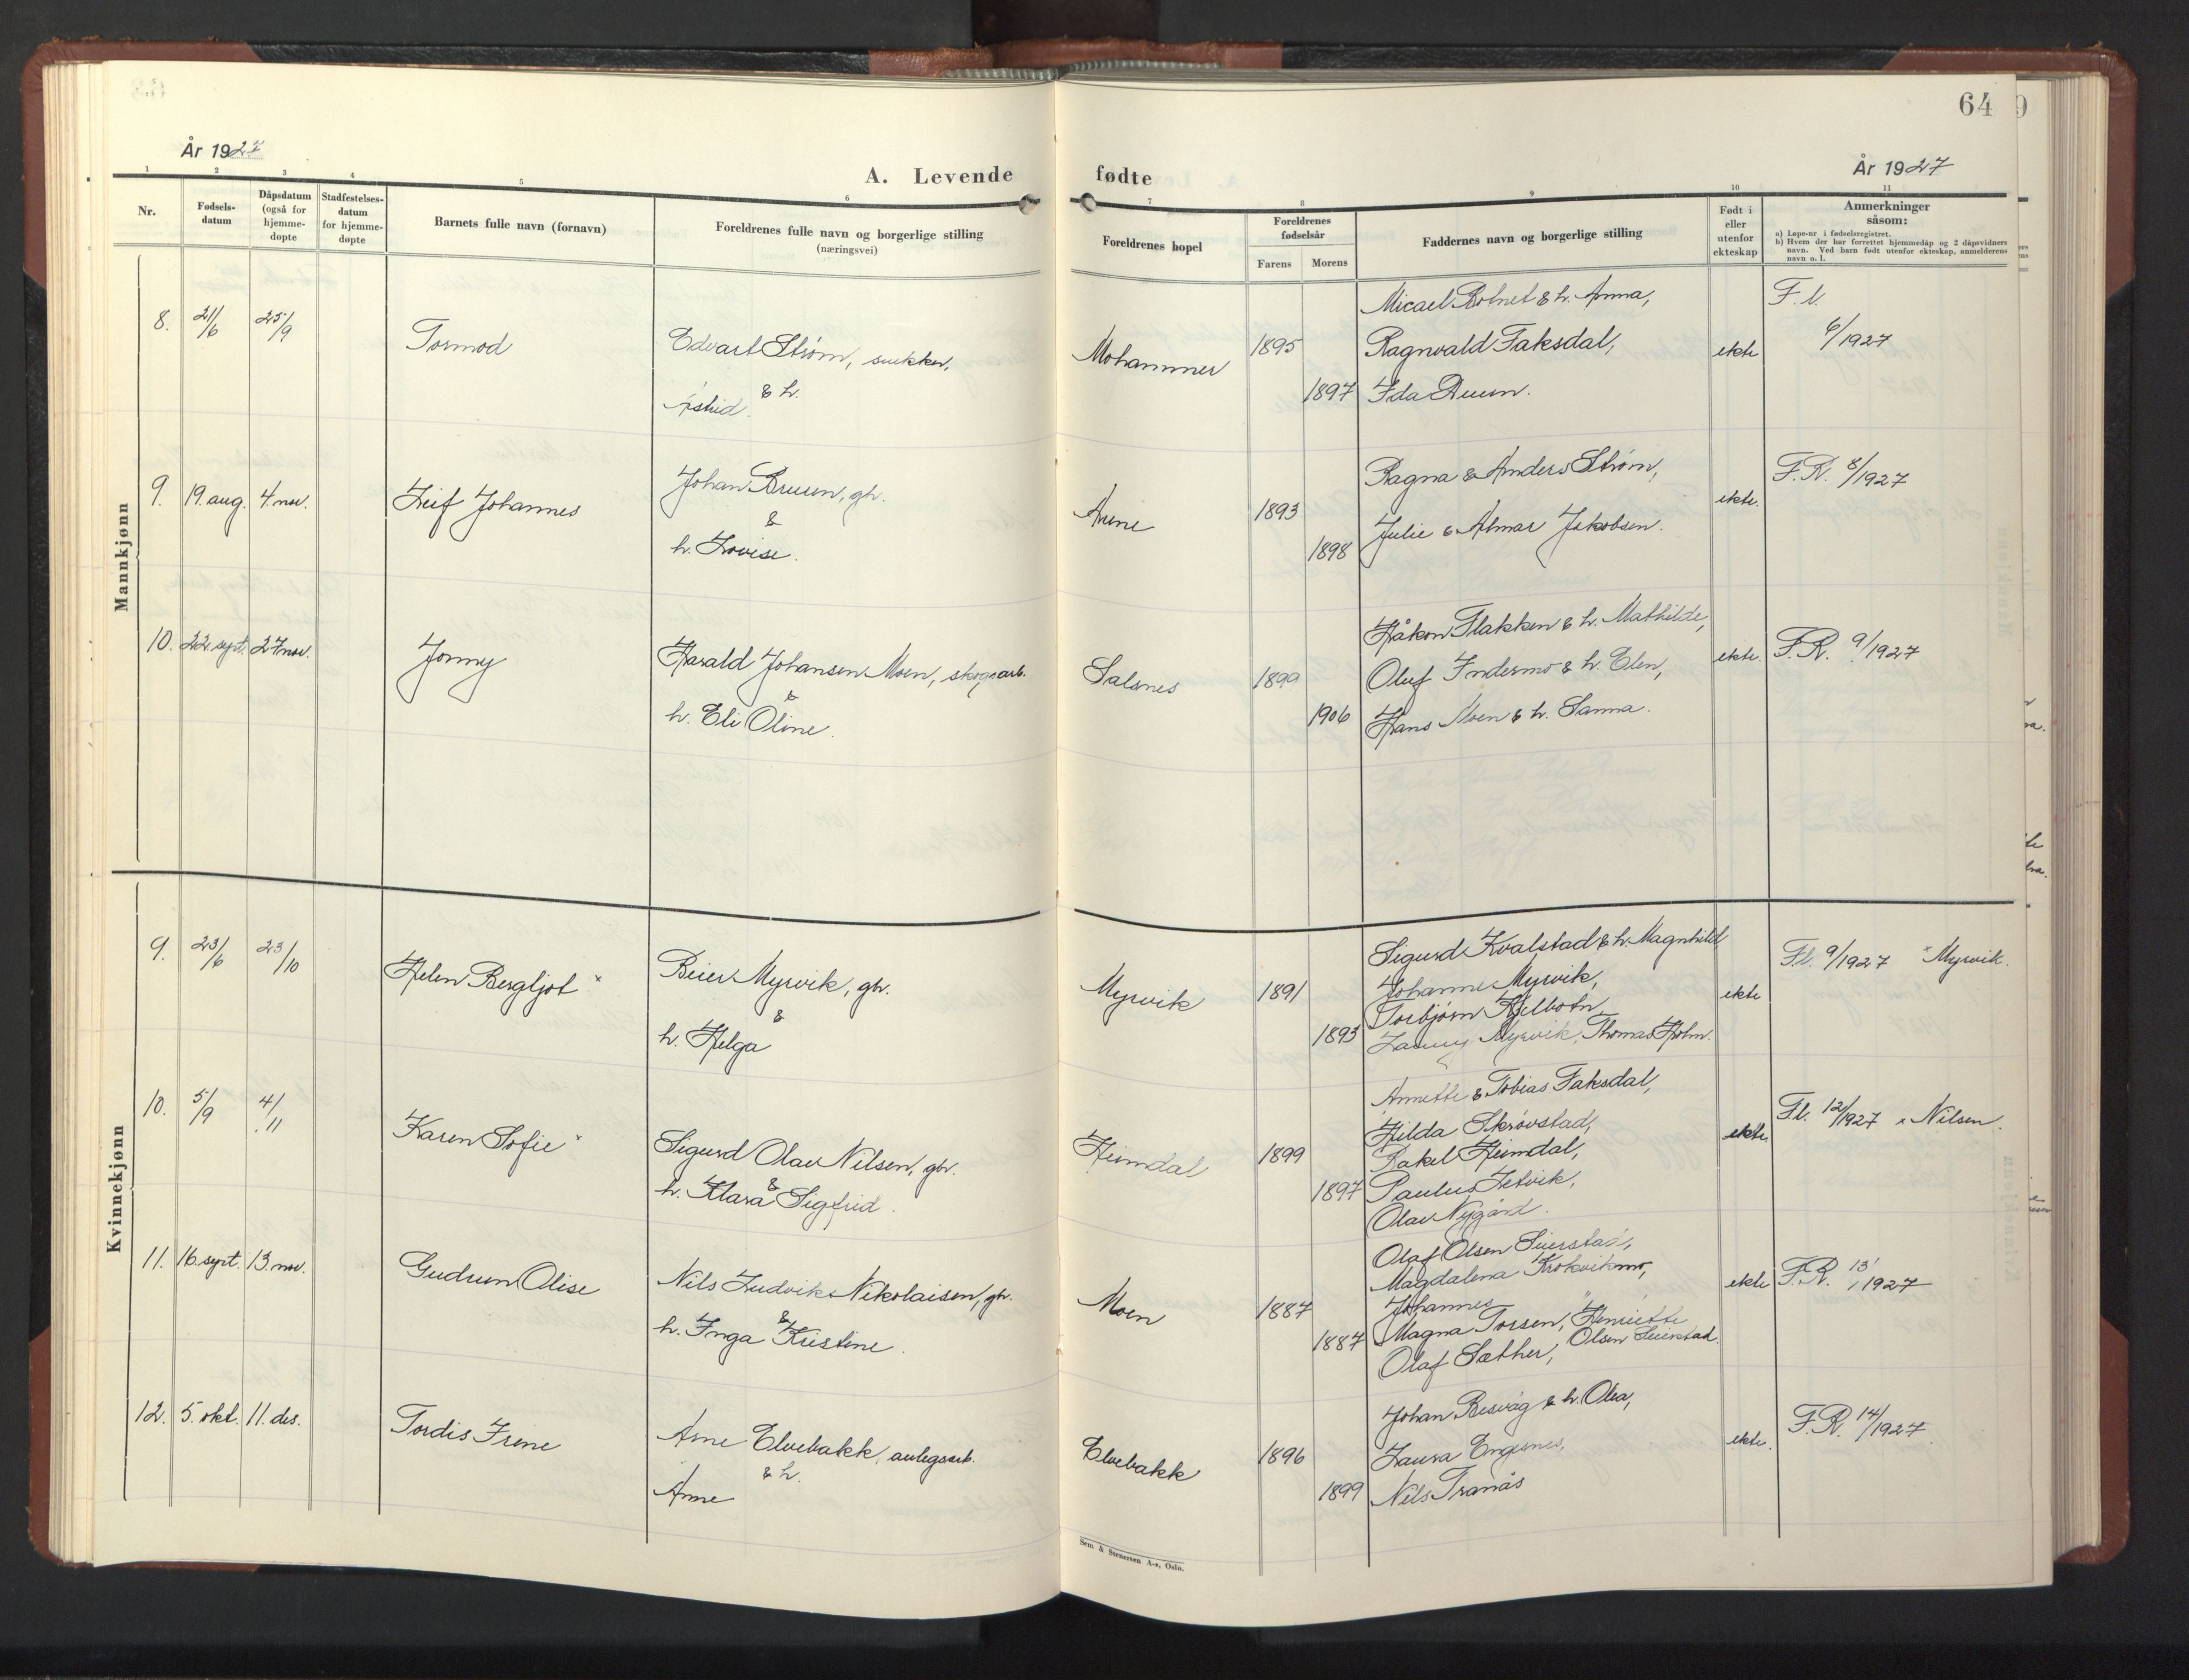 64
År 1927
A. Levende
1 2 3 4 5 6
Nr.
Fødsels-
datum
Dåpsdatum
(også for
hjemme-
døpte
Stadfestelses-
datum
for hjemme-
døpte
Barnets fulle navn (fornavn)
Foreldrenes fulle navn og borgerlige stilling
(næringsvei)
fødte
År 1927
7 8 9 10 11
Foreldrenes bopel
Foreldrenes
fødselsår
Farens Morens
Faddernes navn og borgerlige stilling
Født i
eller
utenfor
ekteskap
Anmerkninger
såsom:
a) Løpe-nr i fødselsregistret.
b) Hvem der har forrettet hjemmedåp og 2 dåpsvidners
navn. Ved barn født utenfor ekteskap, anmelderens
navn o. l.
Mannkjønn
8. 21/6 25/9 Tormod
Edvart Strøm, snekker,
& h.
Astrid.
Mohammer 1895 1897
Micael Botnet & h. Anna,
Ragnvald Faksdal,
Ida Duun.
ekte
F. l.
6/1927
9. 19. aug. 4. nov. Leif Johannes
Johan Bruun, gbr.
&
h. Lovise.
Aune 1893 1898
Ragna & Anders Strøm,
Julie & Almar Jakobsen.
ekte.
F. R. 8/1927
10. 22. sept. 27 nov. Jonny
Harald Johansen Moen, skogsarb.
&
h. Eli Oline.
Salsnes 1899 1906
Håkon Flakken & h. Mathilde,
Oluf Indermo & h. Elen,
Hans Moen & h. Sanna.
ekte.
F. R. 9/1927
Kvinnekjønn
9. 23/6 23/10 Helen Bergljot ×
Beier Myrvik, gbr.
&
h. Helga
Myrvik 1891 1893
Sigurd Kvalstad & h. Magnhild
Johanne Myrvik,
Torbjørn Kjelbotn
Myrvik, Thomas Holm.
ekte
Fl. 9/1927 × Myrvik.
10. 5/9 4/11 Karen Sofie ×
Sigurd Olav Nilsen, gbr.
&
h. Klara Sigfrid.
Heimdal 1899 1897
Annette & Tobias Faksdal,
Hilda Skrøvstad,
Rakel Heimdal,
Paulus Setvik,
Olav Nygård.
ekte.
Fl. 12/1927 × Nilsen.
11. 16. sept. 13. nov. Gudrun Olise
Nils Ludvik Nikolaisen, gbr.
&
h. Inga Kristine.
Moen 1887 1887
Olaf Olsen Seierstad,
Magdalena Krokvikmo,
Johannes
Magna Torsen, Henriette
Olsen Seierstad.
Olaf Sæther,
ekte
F. R. 13/1927
12. 5. okt. 11. des. Tordis Irene
Arne Elvebakk, anlegsarb.
& h.
Anne
Elvebakk 1896 1899
Johan Resvåg & h. Olea,
Laura Engesnes,
Nils Tranås
ekte.
F. R. 14/1927
Sem & Stenersen A-s, Oslo.